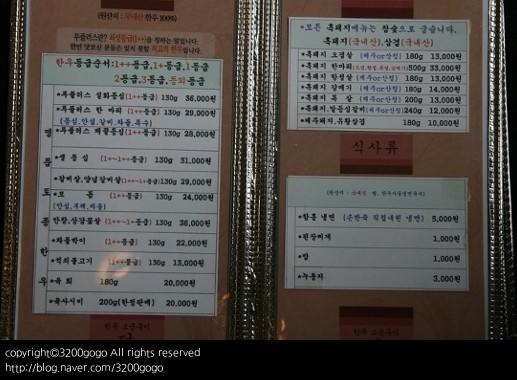 (원산지 : 국내산 한우 100%)
투플러스란? 최상등급(1++)을 칭하는 말입니다.
한번 맛보신 분들은 잊지 못할 최고의 한우입니다.
한우등급순서:1++등급,1+등급,1등급
2등급,3등급,등외등급
*투플러스 설화등심 (1++등급) 130g 36,000원
*투플러스 한 마리 (1++등급) 130g 29,000원
*투플러스 (1++등급) 130g 28,000원
*생 등 심 (1+~1++등급) 130g 31,000원
*갈비살,양념갈비살 (1+~1++등급) 130g 29,000원
*모 듬 (1+등급) 130g 24,000원
안창,살치꽃살 (1++~1+등급) 130g 36,000원
*차돌박이 (1++등급) 130g 22,000원
*석쇠불고기 (1++등급) 130g 13,000원
*육 회 180g 20,000원
*육사시미 200g(한정판매) 20,000원
*모든 흑돼지메뉴는 참숯으로 굽습니다.
흑돼지(국내산),삼겹(국내산)
*흑돼지 오겹살 (제주or산청) 180g 13,000원
*흑돼지 한마리 500g 33,000원
*흑돼지 항정살 (제주or산청) 180g 13,000원
*흑돼지 갈비 (제주or산청) 180g 14,000원
*흑돼지 목 살 (제주or산청) 200g 13,000원
*흑돼지.알등심갈비 (제주or산청) 240g 12,000원
*제주돼지,유황삼겹 180g 10,000원
식사류
*함흥 냉면 (손반죽 직접내린 냉면) 5,000원
*된장찌개 1,000원
*밥 1,000원
*누룽지 3,000원
copyright©3200gogo All rights reserved
http://blog.naver.com/3200gogo